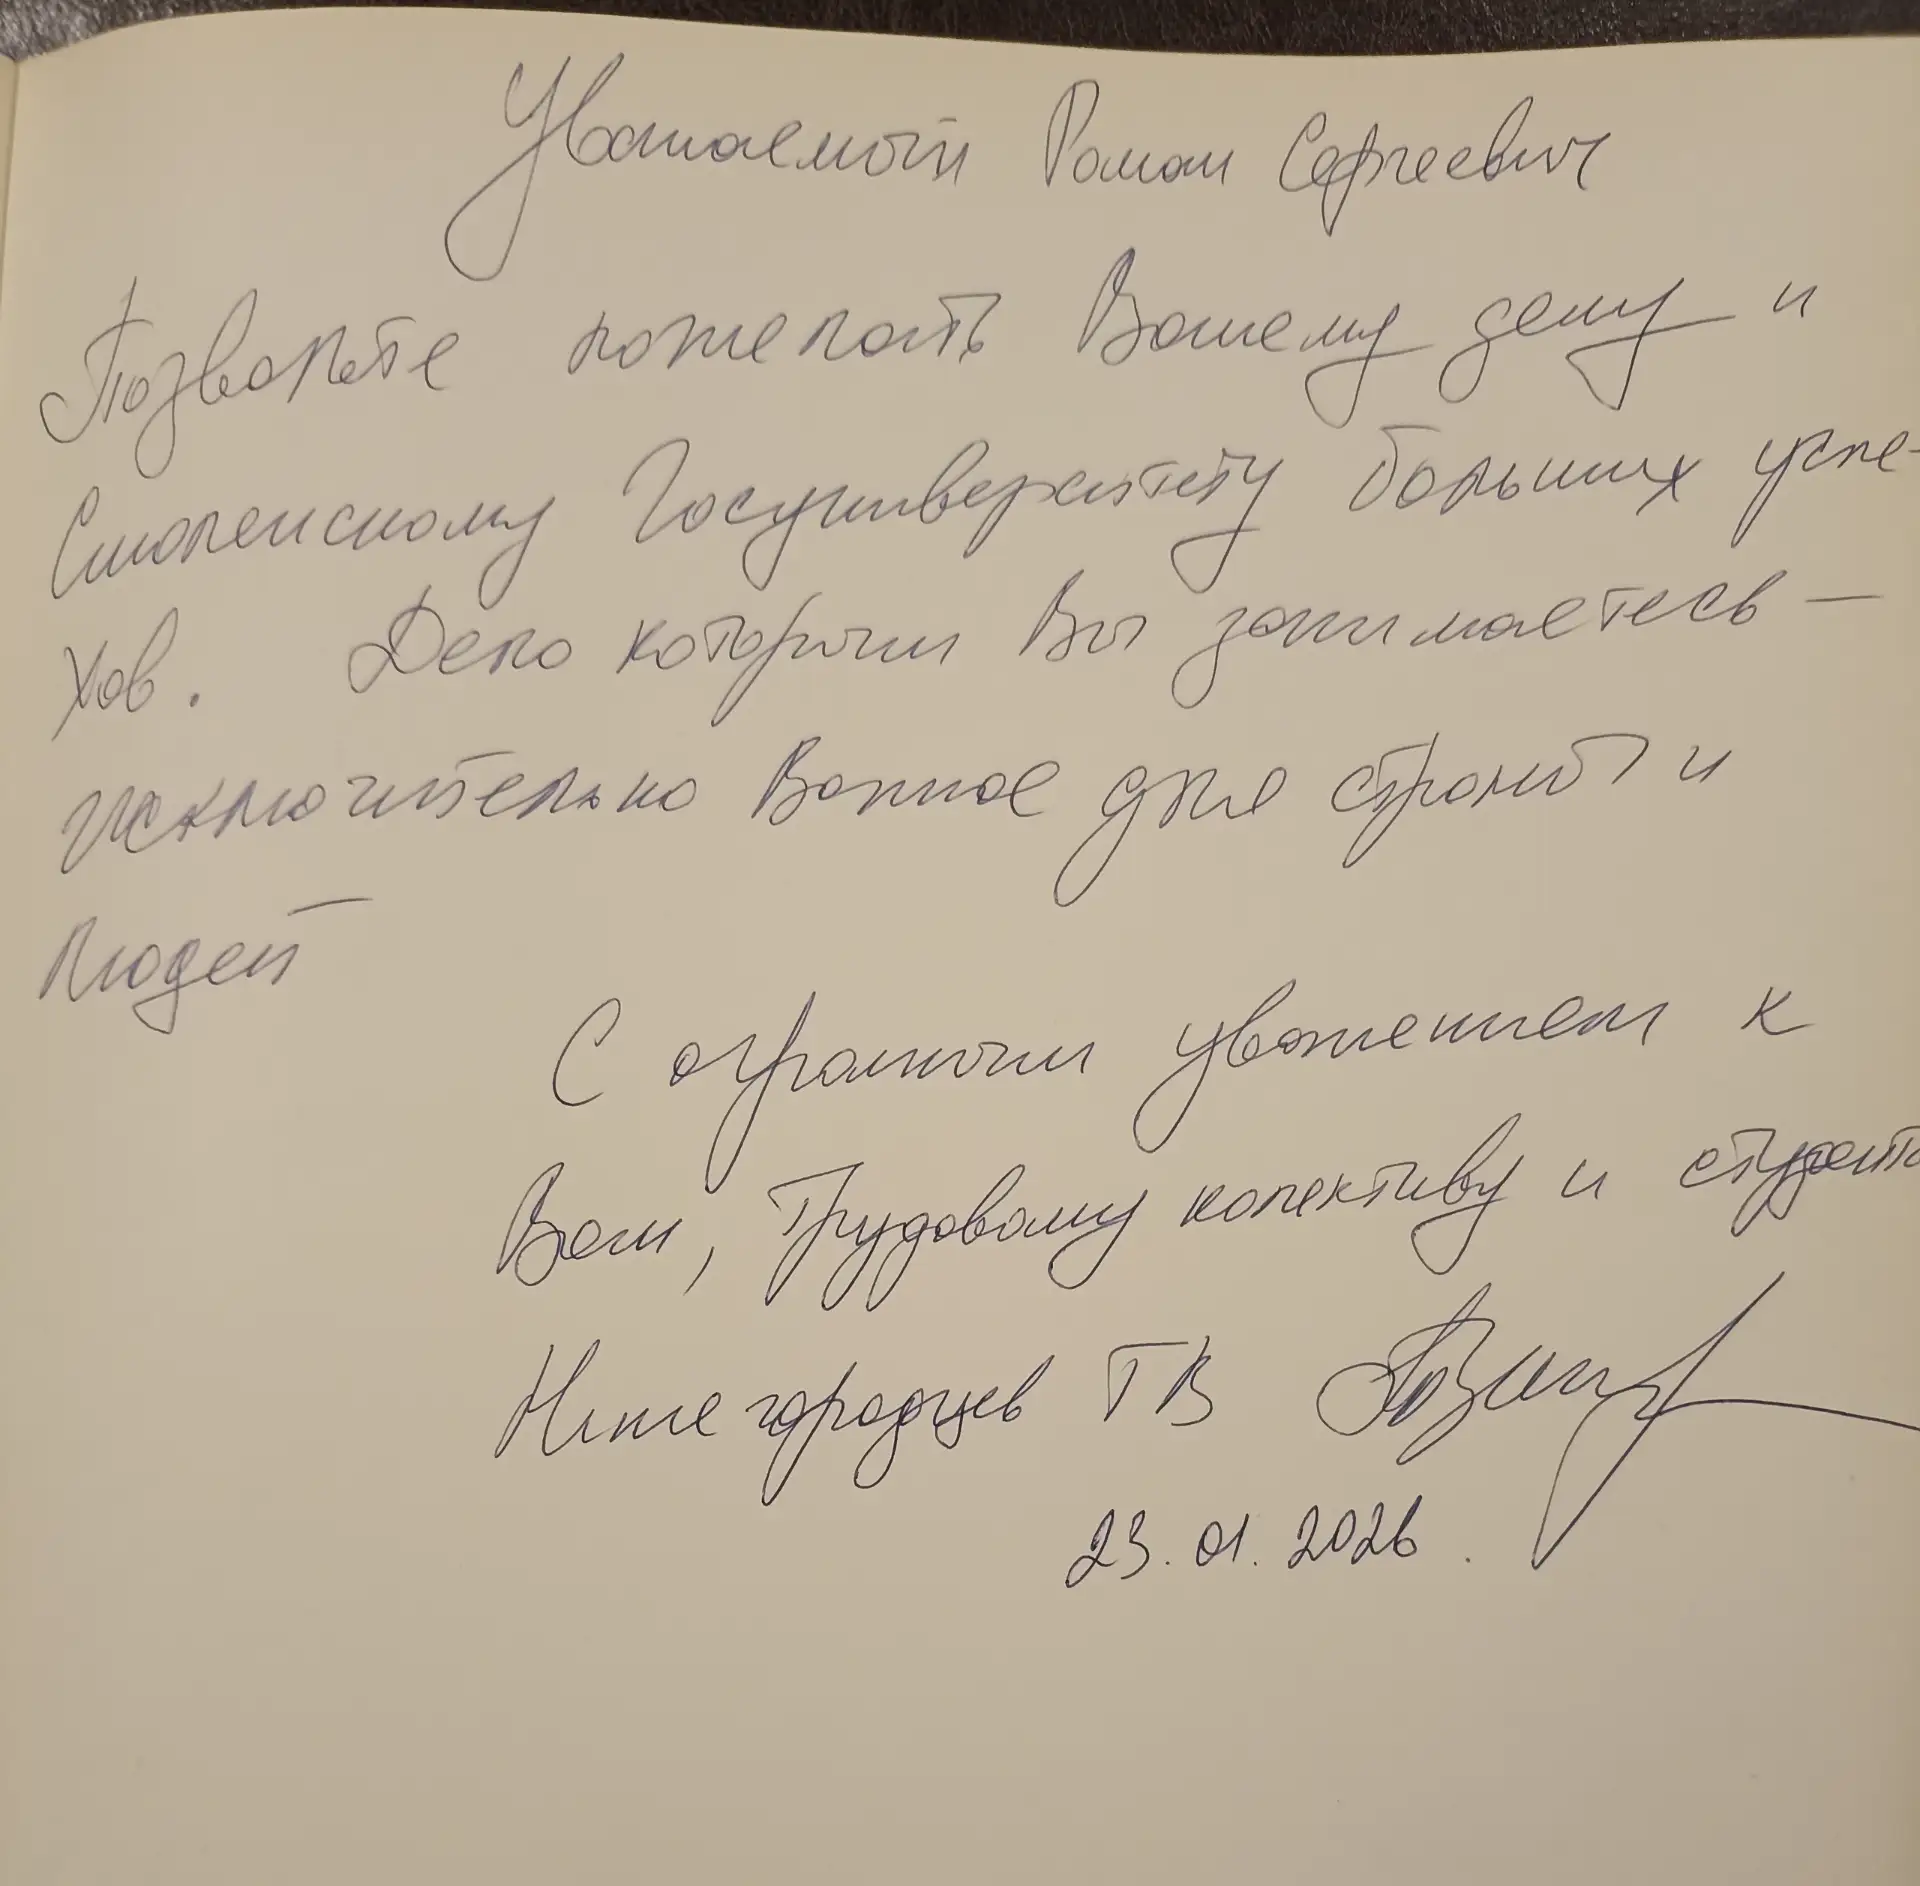 Уважаемый Роман Сергеевич
Позвольте пожелать Вашему делу и
Смоленскому Госуниверситету больших успе-
хов. Дело которым Вы занимаетесь —
исключительно важное для страны и
людей
С огромным уважением к
Вам, Трудовому колективу и студента
Нижегородцев ТВ
23.01.2026.